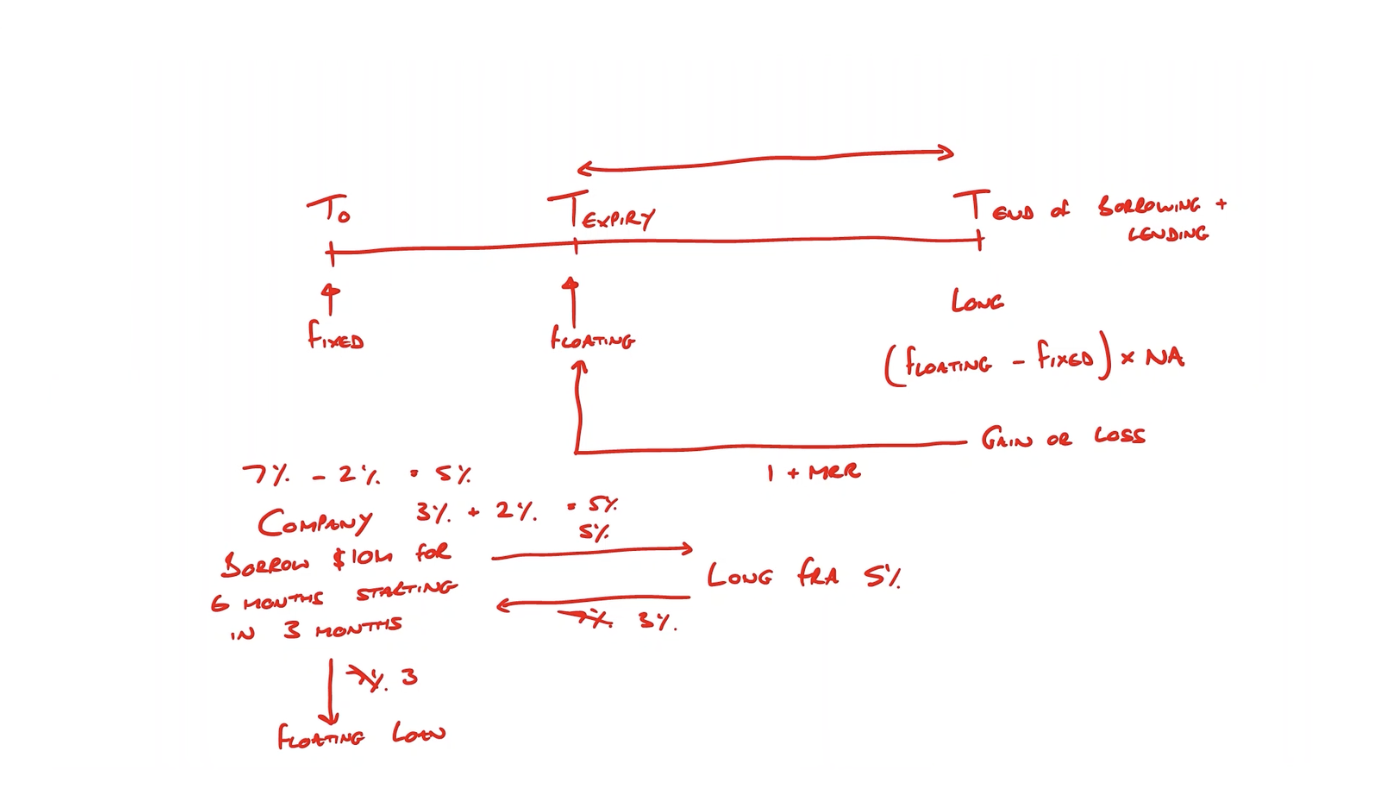 T0
T EXPIRY
T END of BORROWING +
LENDING
FIXED
FLOATING
LONG
(FLOATING - FIXED) × NA
GAIN OR LOSS
1 + MRR
7% - 2% = 5%
COMPANY 3% + 2% = 5%
5%
BORROW $10M FOR
6 MONTHS STARTING
IN 3 MONTHS
LONG FRA 5%
7% 3%
7% 3
FLOATING LOAN